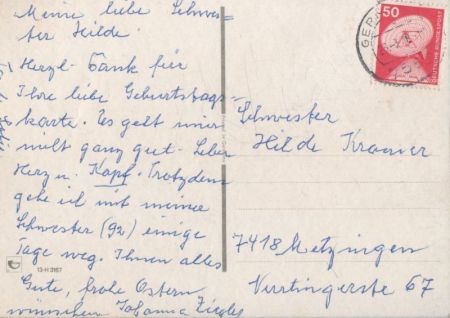 Meine liebe Schwes-
ter Hilde.
Herzl. Dank für
Ihre liebe Geburtstags-
karte. Es geht mir
nicht ganz gut. Leber
Herz u. Kopf. Trotzdem
gehe ich mit meiner
Schwester (92) einige
Tage weg. Ihnen alles
Gute, frohe Ostern
wünschen Johanna Ziegler
13-H 3167
50
DEUTSCHE BUNDESPOST
GER
Schwester
Hilde Kramer
7418 Metzingen
Nürtingerste 67